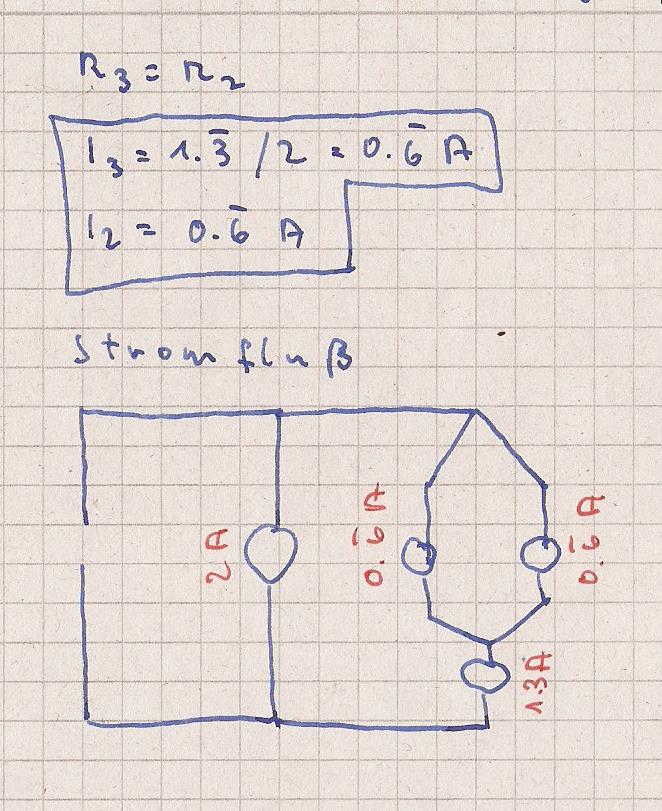 R3 = R2
I3 = 1.3̅ / 2 = 0.6̅ A
I2 = 0.6̅ A
Stromfluß
2A
0.6̅ A
0.6̅ A
1.3A